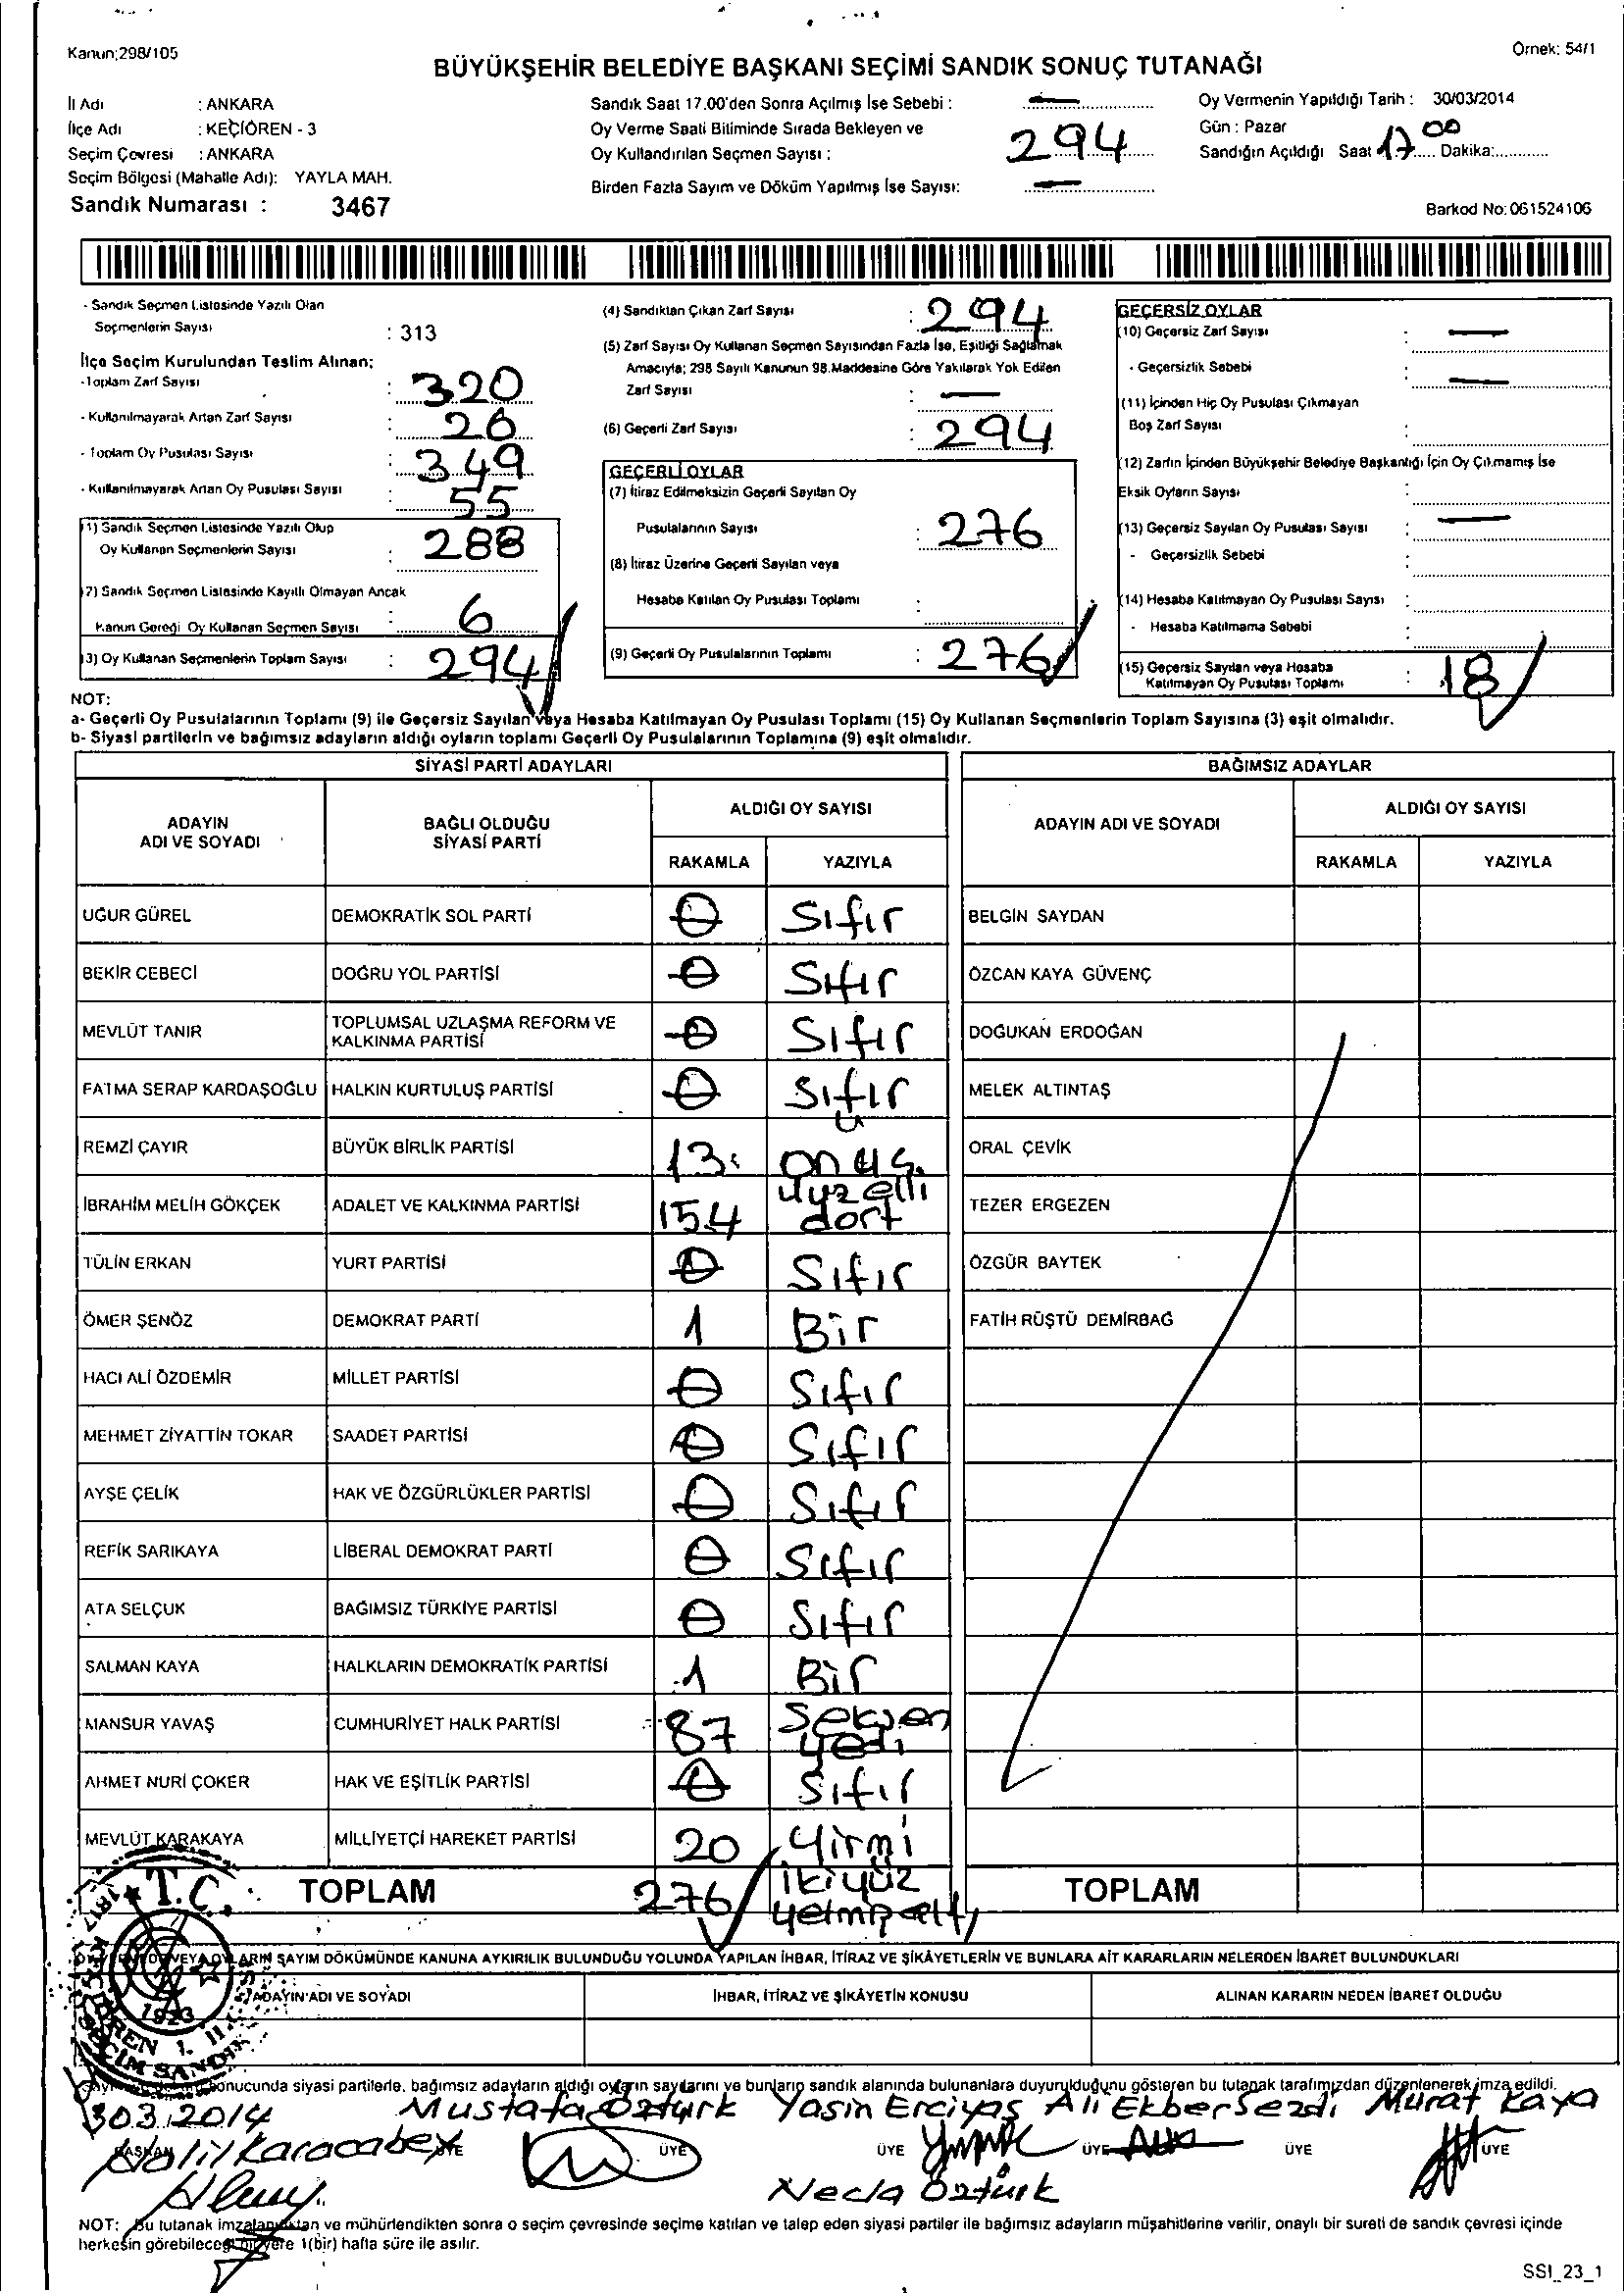 Kanun;298/105
Örnek: 54/1
BÜYÜKŞEHİR BELEDİYE BAŞKANI SEÇİMİ SANDIK SONUÇ TUTANAĞI
İl Adı : ANKARA
İlçe Adı : KEÇİÖREN - 3
Seçim Çevresi : ANKARA
Seçim Bölgesi (Mahalle Adı): YAYLA MAH.
Sandık Numarası : 3467
Sandık Saat 17.00'den Sonra Açılmış İse Sebebi : —
Oy Verme Saati Bitiminde Sırada Bekleyen ve
Oy Kullandırılan Seçmen Sayısı : 294
Birden Fazla Sayım ve Döküm Yapılmış İse Sayısı: —
Oy Vermenin Yapıldığı Tarih : 30/03/2014
Gün : Pazar
Sandığın Açıldığı Saat 17 00 Dakika:
Barkod No:061524106
- Sandık Seçmen Listesinde Yazılı Olan
Seçmenlerin Sayısı : 313
İlçe Seçim Kurulundan Teslim Alınan;
-Toplam Zarf Sayısı : 320
- Kullanılmayarak Artan Zarf Sayısı : 26
- Toplam Oy Pusulası Sayısı : 349
- Kullanılmayarak Artan Oy Pusulası Sayısı : 55
(1) Sandık Seçmen Listesinde Yazılı Olup
Oy Kullanan Seçmenlerin Sayısı : 288
(2) Sandık Seçmen Listesinde Kayıtlı Olmayan Ancak
Kanun Gereği Oy Kullanan Seçmen Sayısı : 6
(3) Oy Kullanan Seçmenlerin Toplam Sayısı : 294
(4) Sandıktan Çıkan Zarf Sayısı : 294
(5) Zarf Sayısı Oy Kullanan Seçmen Sayısından Fazla İse, Eşitliği Sağlamak
Amacıyla; 298 Sayılı Kanunun 98.Maddesine Göre Yakılarak Yok Edilen
Zarf Sayısı : —
(6) Geçerli Zarf Sayısı : 294
GEÇERLİ OYLAR
(7) İtiraz Edilmeksizin Geçerli Sayılan Oy
Pusulalarının Sayısı : 276
(8) İtiraz Üzerine Geçerli Sayılan veya
Hesaba Katılan Oy Pusulası Toplamı :
(9) Geçerli Oy Pusulalarının Toplamı : 276
GEÇERSİZ OYLAR
(10) Geçersiz Zarf Sayısı : —
- Geçersizlik Sebebi : —
(11) İçinden Hiç Oy Pusulası Çıkmayan
Boş Zarf Sayısı :
(12) Zarfın İçinden Büyükşehir Belediye Başkanlığı İçin Oy Çıkmamış İse
Eksik Oyların Sayısı :
(13) Geçersiz Sayılan Oy Pusulası Sayısı : —
- Geçersizlik Sebebi
(14) Hesaba Katılmayan Oy Pusulası Sayısı :
- Hesaba Katılmama Sebebi :
(15) Geçersiz Sayılan veya Hesaba
Katılmayan Oy Pusulası Toplamı : 18
NOT:
a- Geçerli Oy Pusulalarının Toplamı (9) ile Geçersiz Sayılan veya Hesaba Katılmayan Oy Pusulası Toplamı (15) Oy Kullanan Seçmenlerin Toplam Sayısına (3) eşit olmalıdır.
b- Siyasi partilerin ve bağımsız adayların aldığı oyların toplamı Geçerli Oy Pusulalarının Toplamına (9) eşit olmalıdır.
SİYASİ PARTİ ADAYLARI
ADAYIN ADI VE SOYADI BAĞLI OLDUĞU SİYASİ PARTİ ALDIĞI OY SAYISI
RAKAMLA YAZIYLA
UĞUR GÜREL DEMOKRATİK SOL PARTİ 0 Sıfır
BEKİR CEBECİ DOĞRU YOL PARTİSİ 0 Sıfır
MEVLÜT TANIR TOPLUMSAL UZLAŞMA REFORM VE KALKINMA PARTİSİ 0 Sıfır
FATMA SERAP KARDAŞOĞLU HALKIN KURTULUŞ PARTİSİ 0 Sıfır
REMZİ ÇAYIR BÜYÜK BİRLİK PARTİSİ 13 on üç
İBRAHİM MELİH GÖKÇEK ADALET VE KALKINMA PARTİSİ 154 yüz elli dört
TÜLİN ERKAN YURT PARTİSİ 0 Sıfır
ÖMER ŞENÖZ DEMOKRAT PARTİ 1 Bir
HACI ALİ ÖZDEMİR MİLLET PARTİSİ 0 Sıfır
MEHMET ZİYATTİN TOKAR SAADET PARTİSİ 0 Sıfır
AYŞE ÇELİK HAK VE ÖZGÜRLÜKLER PARTİSİ 0 Sıfır
REFİK SARIKAYA LİBERAL DEMOKRAT PARTİ 0 Sıfır
ATA SELÇUK BAĞIMSIZ TÜRKİYE PARTİSİ 0 Sıfır
SALMAN KAYA HALKLARIN DEMOKRATİK PARTİSİ 1 Bir
MANSUR YAVAŞ CUMHURİYET HALK PARTİSİ 87 Seksen yedi
AHMET NURİ ÇOKER HAK VE EŞİTLİK PARTİSİ 0 Sıfır
MEVLÜT KARAKAYA MİLLİYETÇİ HAREKET PARTİSİ 20 Yirmi
TOPLAM 276 ikiyüz yetmiş altı
BAĞIMSIZ ADAYLAR
ADAYIN ADI VE SOYADI ALDIĞI OY SAYISI
RAKAMLA YAZIYLA
BELGİN SAYDAN
ÖZCAN KAYA GÜVENÇ
DOĞUKAN ERDOĞAN
MELEK ALTINTAŞ
ORAL ÇEVİK
TEZER ERGEZEN
ÖZGÜR BAYTEK
FATİH RÜŞTÜ DEMİRBAĞ
TOPLAM
SAYIM DÖKÜMÜNDE KANUNA AYKIRILIK BULUNDUĞU YOLUNDA YAPILAN İHBAR, İTİRAZ VE ŞİKÂYETLERİN VE BUNLARA AİT KARARLARIN NELERDEN İBARET BULUNDUKLARI
ADAYIN ADI VE SOYADI İHBAR, İTİRAZ VE ŞİKÂYETİN KONUSU ALINAN KARARIN NEDEN İBARET OLDUĞU
T.C.
1923
sonucunda siyasi partilerle, bağımsız adayların aldığı oyların sayılarını ve bunların sandık alanında bulunanlara duyurulduğunu gösteren bu tutanak tarafımızdan düzenlenerek imza edildi.
30.3.2014 Mustafa Öztürk Yasin Erciyas Ali Ekber Sezdi Murat Kaya
BAŞKAN ÜYE ÜYE ÜYE ÜYE ÜYE ÜYE
Halil Karacabey
Necla Öztürk
NOT: Bu tutanak imzalandıktan ve mühürlendikten sonra o seçim çevresinde seçime katılan ve talep eden siyasi partiler ile bağımsız adayların müşahitlerine verilir, onaylı bir sureti de sandık çevresi içinde
herkesin görebileceği bir yere 1(bir) hafta süre ile asılır.
SSI_23_1